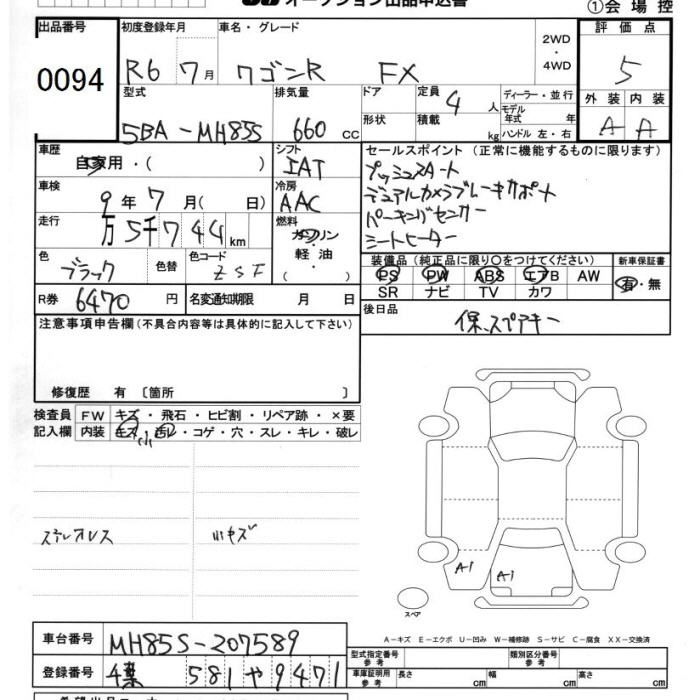 オークション出品申込書
①会場控
出品番号 0094
初度登録年月 R6 7月
車名・グレード ワゴンR FX
2WD・4WD
評価点 5
型式 5BA-MH85S
排気量 660 cc
ドア
形状
定員 4人
積載 kg
ディーラー・並行
モデル年式 年
ハンドル 左・右
外装 A
内装 A
車歴 自家用・( )
シフト IAT
車検 9年7月( 日)
冷房 AAC
走行 万5千744km
燃料 ガソリン
軽油
・( )
色 ブラック 色替
色コード ZSF
R券 6470円
名変通知期限 月 日
セールスポイント (正常に機能するものに限ります)
プッシュスタート
デュアルカメラブレーキサポート
パーキングセンサー
シートヒーター
装備品(純正品に限り○をつけてください)
PS PW ABS エアB AW
SR ナビ TV カワ
新車保証書
有・無
後日品 保、スペアキー
注意事項申告欄(不具合内容等は具体的に記入して下さい)
修復歴 有 〔箇所 〕
検査員記入欄
FW キズ・飛石・ヒビ割・リペア跡・×要
内装 キズ・汚レ・コゲ・穴・スレ・キレ・破レ
小
ステレオレス 小キズ
A1 A1
スペア
A-キズ E-エクボ U-凹み W-補修跡 S-サビ C-腐食 XX-交換済
車台番号 MH85S-207589
登録番号 581や9471
型式指定番号 参考
類別区分番号 参考
車庫証明用 参考 長さ cm 幅 cm 高さ cm